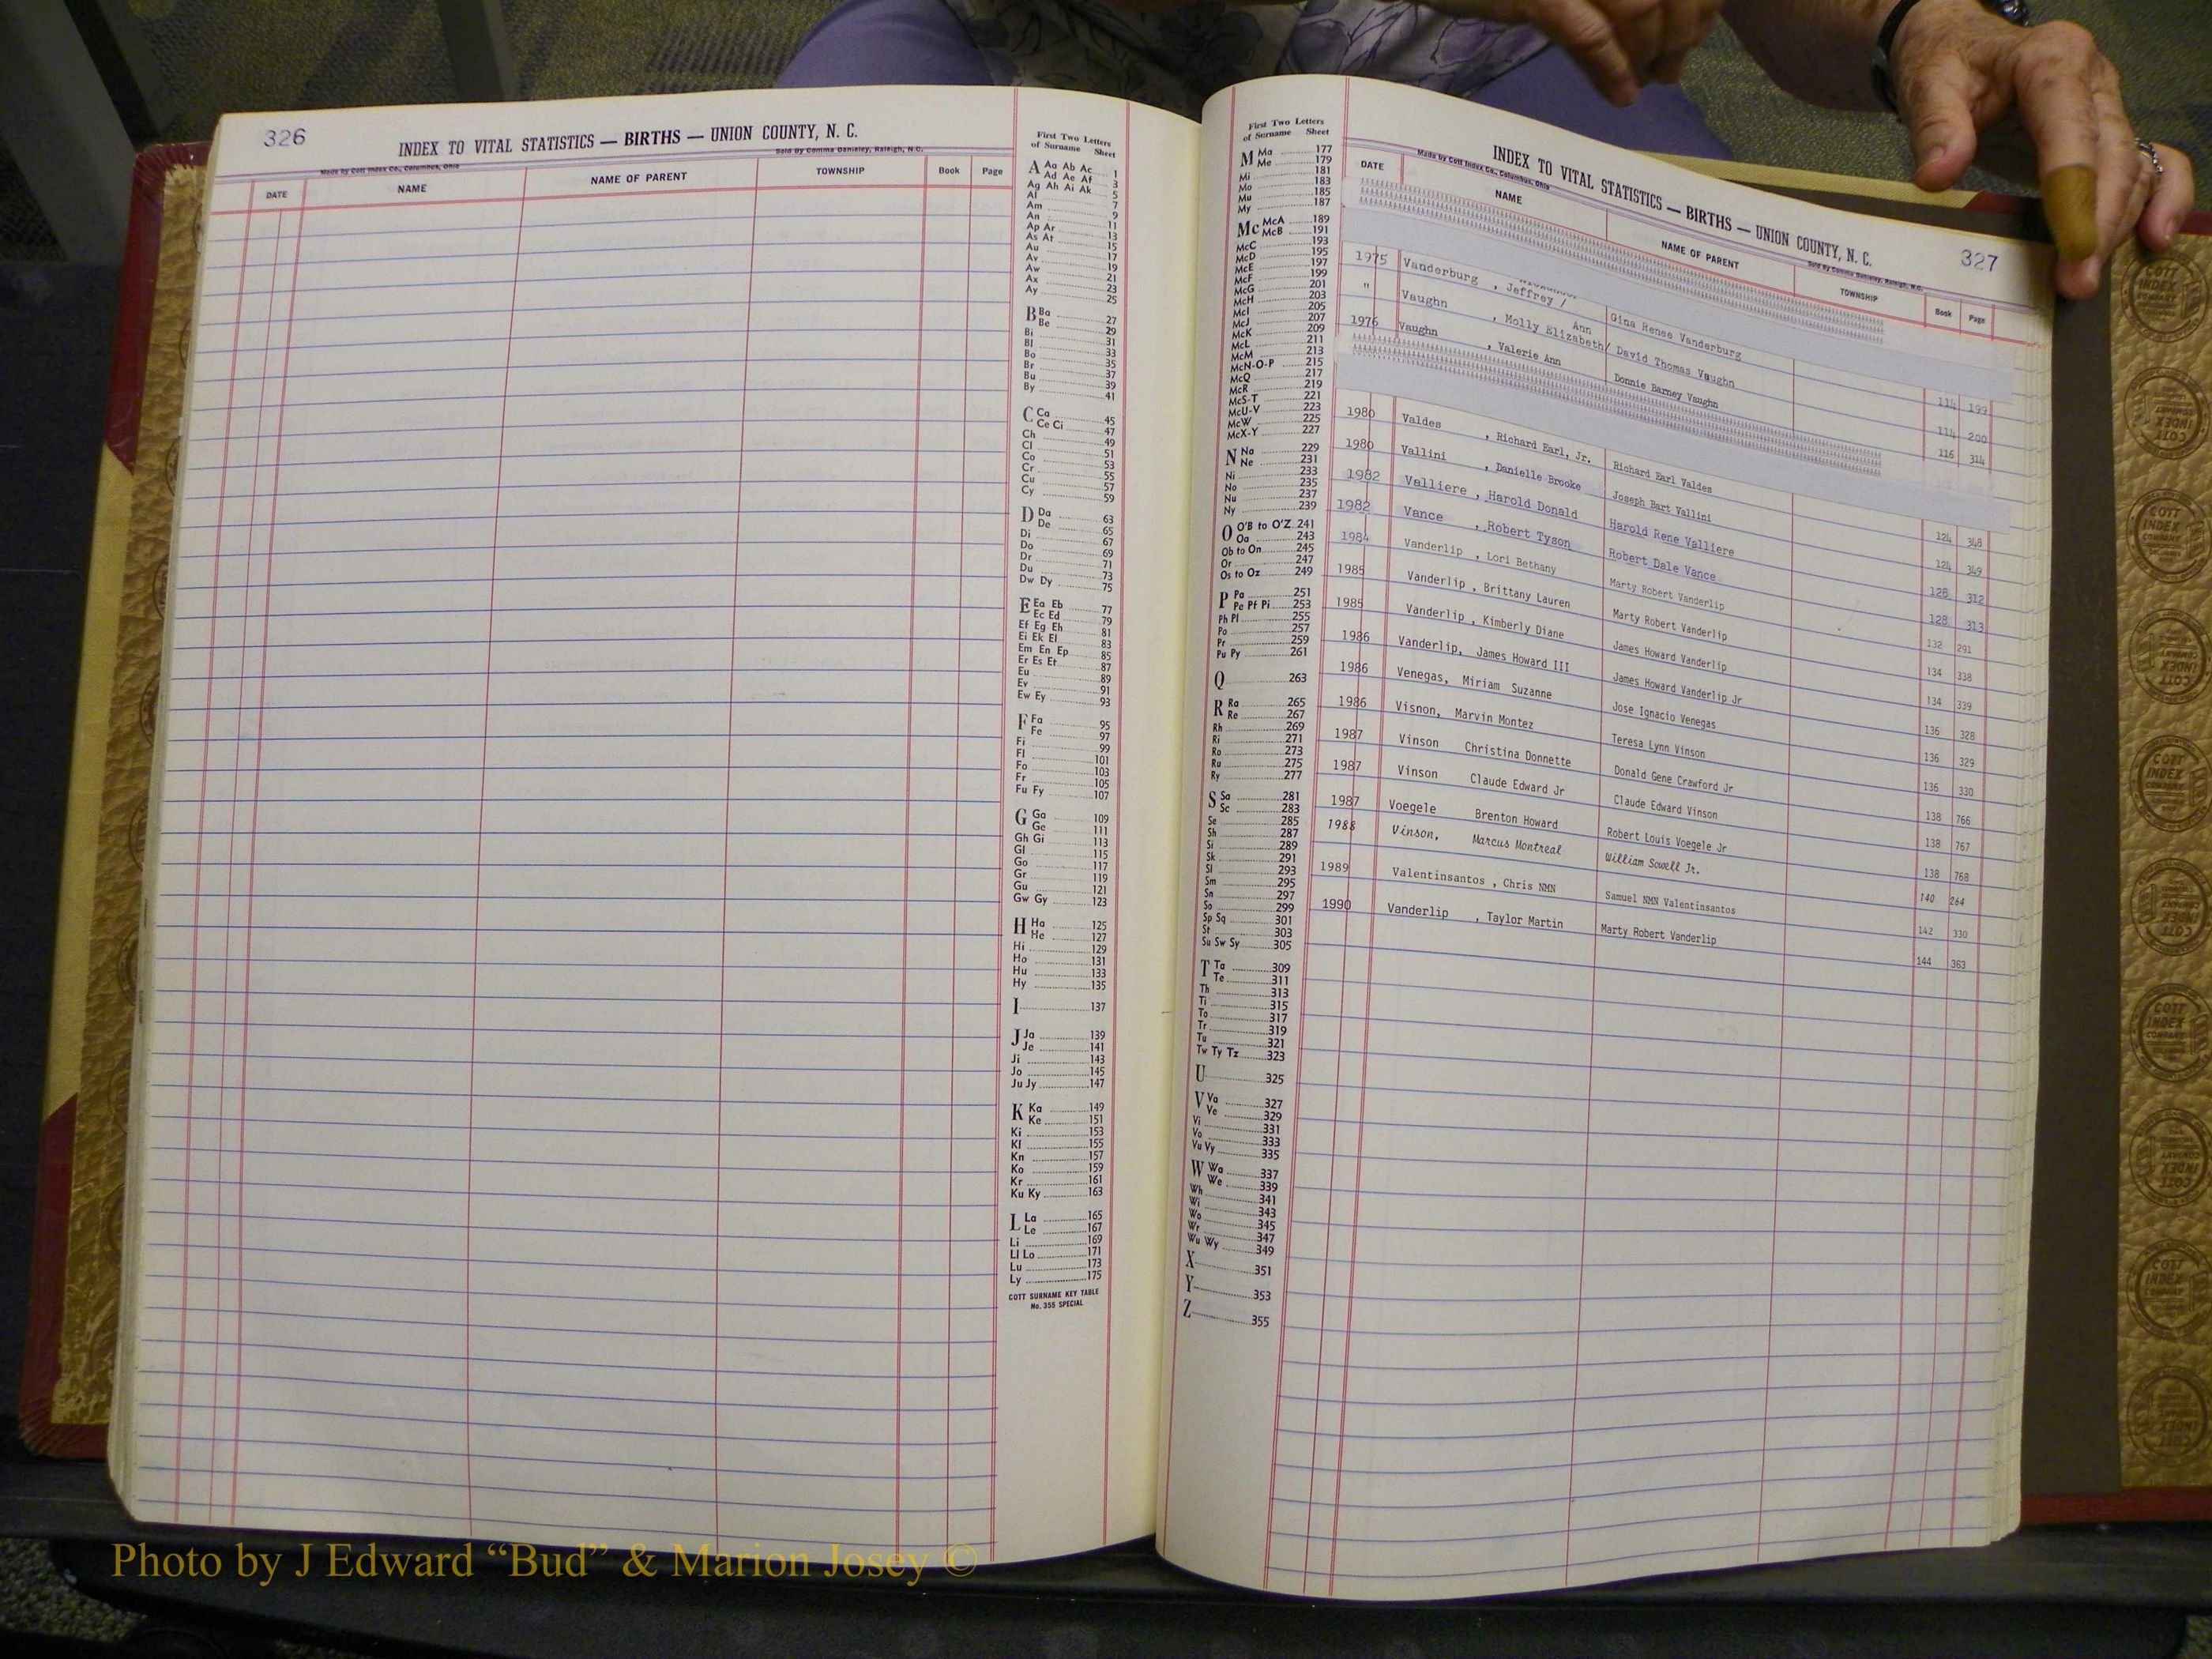 326
INDEX TO VITAL STATISTICS — BIRTHS — UNION COUNTY, N. C.
Made by Cott Index Co., Columbus, Ohio
Sold By Comma Danieley, Raleigh, N.C.
DATE NAME NAME OF PARENT TOWNSHIP Book Page
First Two Letters
of Surname Sheet
A Aa Ab Ac 1
Ad Ae Af 3
Ag Ah Ai Ak 5
Al 7
Am 9
An 11
Ap Ar 13
As At 15
Au 17
Av 19
Aw 21
Ax 23
Ay 25
B Ba 27
Be 29
Bi 31
Bl 33
Bo 35
Br 37
Bu 39
By 41
C Ca 45
Ce Ci 47
Ch 49
Cl 51
Co 53
Cr 55
Cu 57
Cy 59
D Da 63
De 65
Di 67
Do 69
Dr 71
Du 73
Dw Dy 75
E Ea Eb 77
Ec Ed 79
Ef Eg Eh 81
Ei Ek El 83
Em En Ep 85
Er Es Et 87
Eu 89
Ev 91
Ew Ey 93
F Fa 95
Fe 97
Fi 99
Fl 101
Fo 103
Fr 105
Fu Fy 107
G Ga 109
Ge 111
Gh Gi 113
Gl 115
Go 117
Gr 119
Gu 121
Gw Gy 123
H Ha 125
He 127
Hi 129
Ho 131
Hu 133
Hy 135
I 137
J Ja 139
Je 141
Ji 143
Jo 145
Ju Jy 147
K Ka 149
Ke 151
Ki 153
Kl 155
Kn 157
Ko 159
Kr 161
Ku Ky 163
L La 165
Le 167
Li 169
Ll Lo 171
Lu 173
Ly 175
COTT SURNAME KEY TABLE
No. 355 SPECIAL
First Two Letters
of Surname Sheet
M Ma 177
Me 179
Mi 181
Mo 183
Mu 185
My 187
Mc McA 189
McB 191
McC 193
McD 195
McE 197
McF 199
McG 201
McH 203
McI 205
McJ 207
McK 209
McL 211
McM 213
McN-O-P 215
McQ 217
McR 219
McS-T 221
McU-V 223
McW 225
McX-Y 227
N Na 229
Ne 231
Ni 233
No 235
Nu 237
Ny 239
O O'B to O'Z 241
Oa 243
Ob to On 245
Or 247
Os to Oz 249
P Pa 251
Pe Pf Pi 253
Ph Pl 255
Po 257
Pr 259
Pu Py 261
Q 263
R Ra 265
Re 267
Rh 269
Ri 271
Ro 273
Ru 275
Ry 277
S Sa 281
Sc 283
Se 285
Sh 287
Si 289
Sk 291
Sl 293
Sm 295
Sn 297
So 299
Sp Sq 301
St 303
Su Sw Sy 305
T Ta 309
Te 311
Th 313
Ti 315
To 317
Tr 319
Tu 321
Tw Ty Tz 323
U 325
V Va 327
Ve 329
Vi 331
Vo 333
Vu Vy 335
W Wa 337
We 339
Wh 341
Wi 343
Wo 345
Wr 347
Wu Wy 349
X 351
Y 353
Z 355
327
INDEX TO VITAL STATISTICS — BIRTHS — UNION COUNTY, N. C.
Made by Cott Index Co., Columbus, Ohio
Sold By Comma Danieley, Raleigh, N.C.
DATE NAME NAME OF PARENT TOWNSHIP Book Page
1975 Vanderburg , Jeffrey / Gina Renee Vanderburg 114 199
" Vaughn , Molly Elizabeth/ Ann David Thomas Vaughn 114 200
1976 Vaughn , Valerie Ann Donnie Barney Vaughn 116 314
1980 Valdes , Richard Earl, Jr. Richard Earl Valdes 124 348
1980 Vallini , Danielle Brooke Joseph Bart Vallini 124 349
1982 Valliere , Harold Donald Harold Rene Valliere 128 312
1982 Vance , Robert Tyson Robert Dale Vance 128 313
1984 Vanderlip , Lori Bethany Marty Robert Vanderlip 132 291
1985 Vanderlip , Brittany Lauren Marty Robert Vanderlip 134 338
1985 Vanderlip , Kimberly Diane James Howard Vanderlip 134 339
1986 Vanderlip, James Howard III James Howard Vanderlip Jr 136 328
1986 Venegas, Miriam Suzanne Jose Ignacio Venegas 136 329
1986 Visnon, Marvin Montez Teresa Lynn Vinson 136 330
1987 Vinson Christina Donnette Donald Gene Crawford Jr 138 766
1987 Vinson Claude Edward Jr Claude Edward Vinson 138 767
1987 Voegele Brenton Howard Robert Louis Voegele Jr 138 768
1988 Vinson, Marcus Montreal William Sowell Jr. 140 264
1989 Valentinsantos , Chris NMN Samuel NMN Valentinsantos 142 330
1990 Vanderlip , Taylor Martin Marty Robert Vanderlip 144 363
COTT
INDEX
COMPANY
Photo by J Edward “Bud” & Marion Josey ©